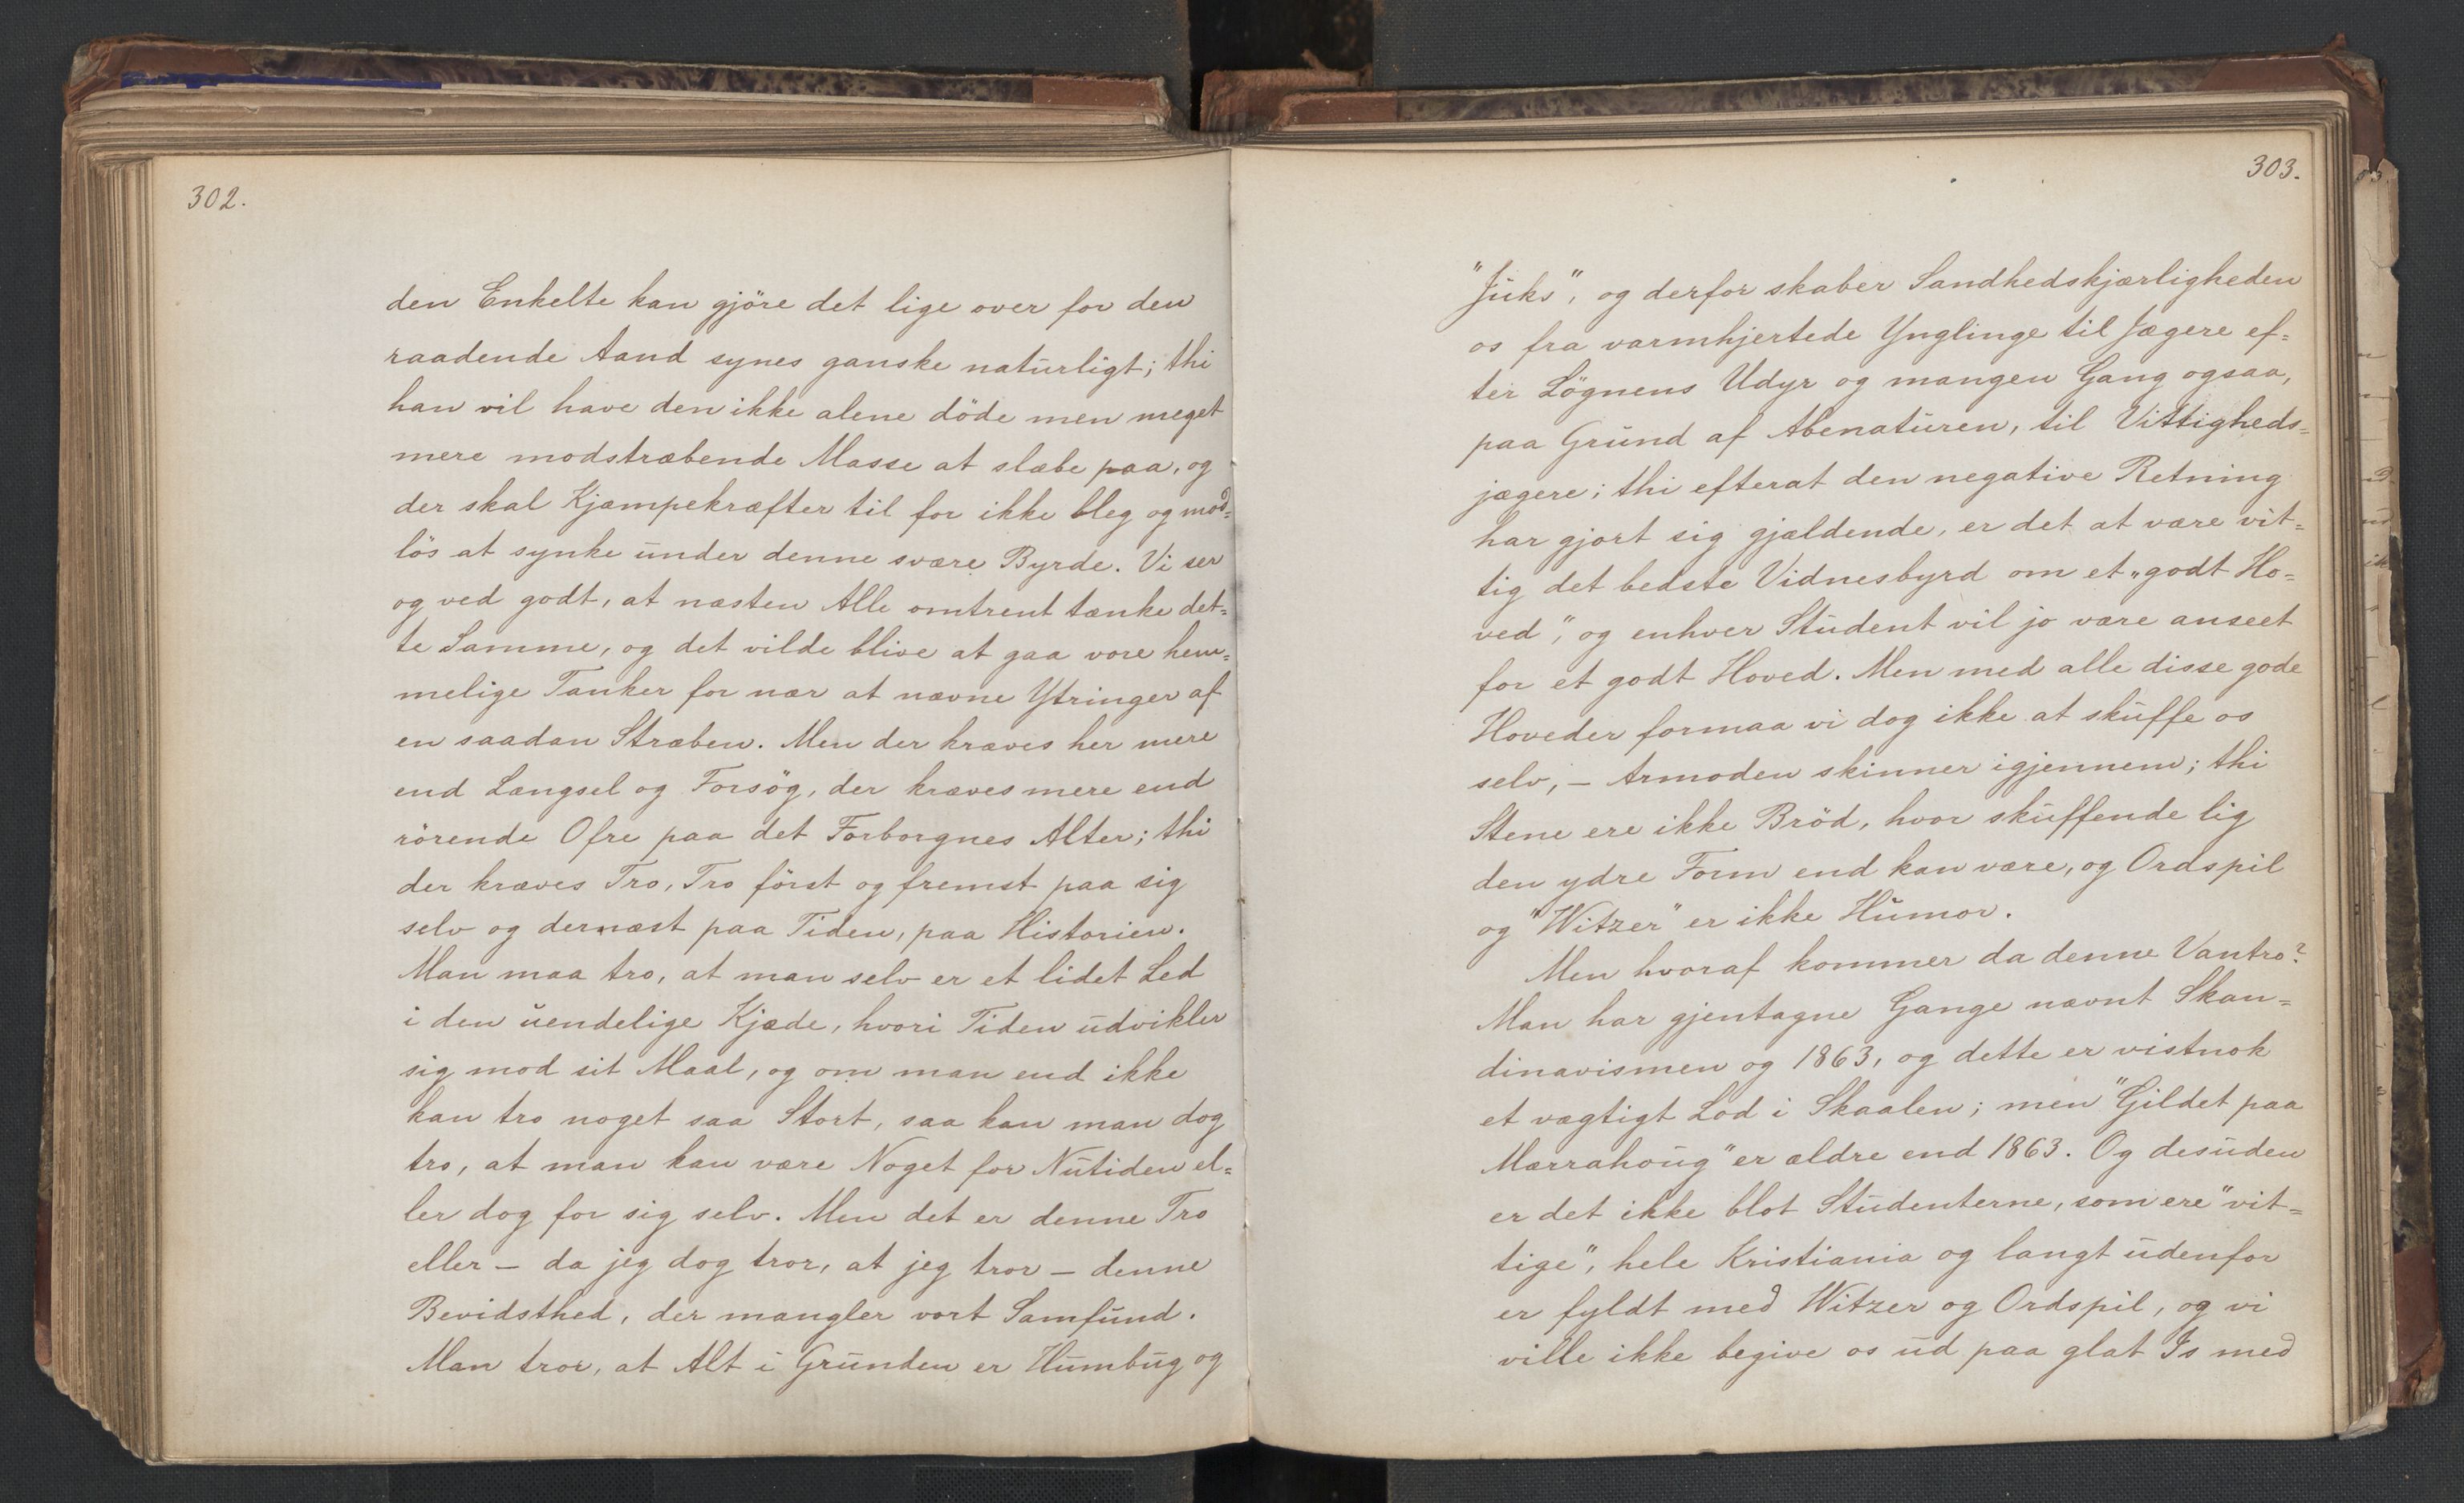 302.
den Enkelte kan gjöre det lige over for den
raadende Aand synes ganske naturligt; thi
han vil have den ikke alene döde men meget
mere modstræbende Masse at slæbe paa, og
der skal Kjæmpekræfter til for ikke bleg og mod=
lös at synke under denne svære Byrde. Vi ser
og ved godt, at næsten Alle omtrent tænke det=
te Samme, og det vilde blive at gaa vore hem=
melige Tanker for nær at nævne Ytringer af
en saadan Stræben. Men der kræves her mere
end Længsel og Forsög, der kræves mere end
rörende Ofre paa det Forborgnes Alter; thi
der kræves Tro, Tro först og fremst paa sig
selv og dernæst paa Tiden, paa Historien.
Man maa tro, at man selv er et lidet Led
i den uendelige Kjæde, hvori Tiden udvikler
sig mod sit Maal, og om man end ikke
kan tro noget saa Stort, saa kan man dog
tro, at man kan være Noget for Nutiden el=
ler dog for sig selv. Men det er denne Tro
eller – da jeg dog tror, at jeg tror – denne
Bevidsthed, der mangler vort Samfund.
Man tror, at Alt i Grunden er Humbug og
303.
"Juks", og derfor skaber Sandhedskjærligheden
os fra varmhjertede Ynglinge til Jægere ef=
ter Lögnens Udyr og mangen Gang ogsaa,
paa Grund af Abenaturen, til Vittigheds=
jægere; thi efterat den negative Retning
har gjort sig gjældende, er det at være vit=
tig det bedste Vidnesbyrd om et "godt Ho=
ved", og enhver Student vil jo være anseet
for et godt Hoved. Men med alle disse gode
Hoveder formaa vi dog ikke at skuffe os
selv, – Armoden skinner igjennem; thi
Stene ere ikke Bröd, hvor skuffende lig
den ydre Form end kan være, og Ordspil
og "Witzer" er ikke Humor.
Men hvoraf kommer da denne Vantro?
Man har gjentagne Gange nævnt Skan=
dinavismen og 1863, og dette er vistnok
et vægtigt Lod i Skaalen; men "Gildet paa
Mærrahoug" er ældre end 1863. Og desuden
er det ikke blot Studenterne, som ere "vit=
tige", hele Kristiania og langt udenfor
er fyldt med Witzer og Ordspil, og vi
ville ikke begive os ud paa glat Is med